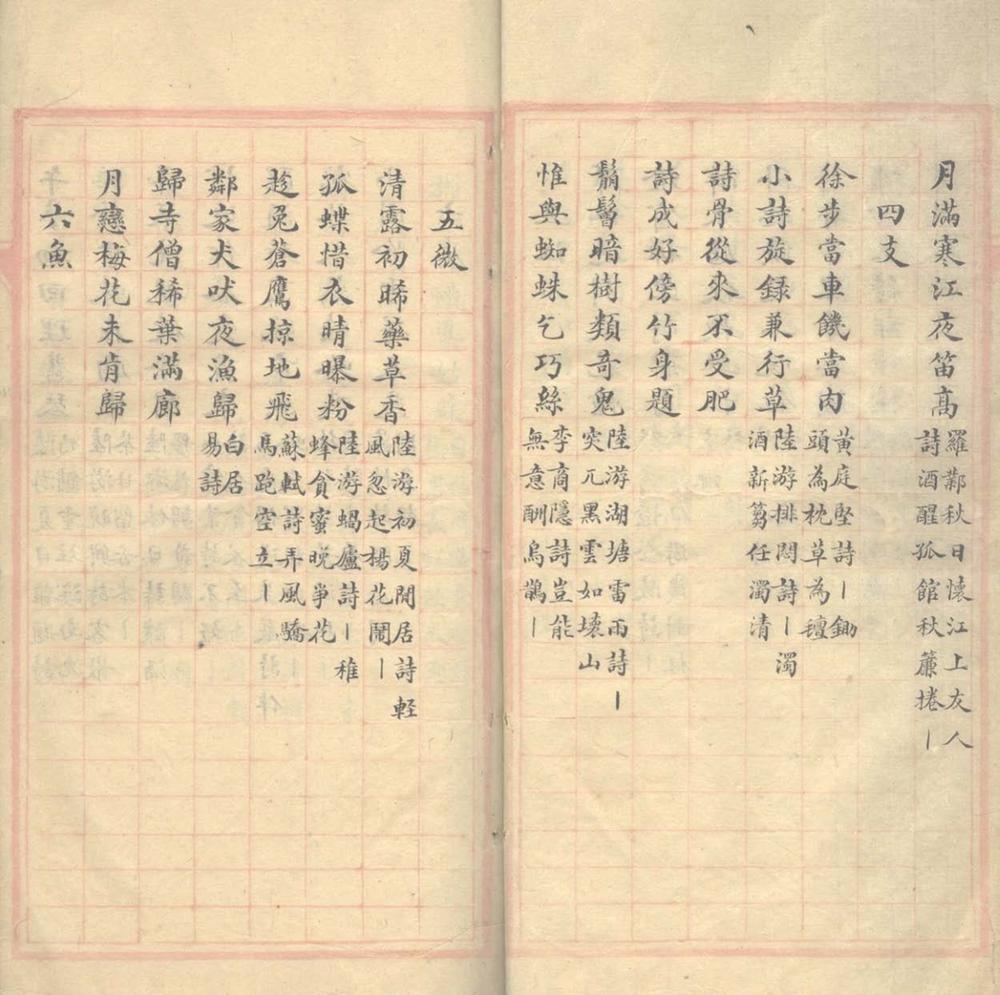 月滿寒江夜笛高
羅鄴秋日懷江上友人
詩酒醒孤館秋簾捲丨
四支
徐步當車饑當肉
黃庭堅詩丨鋤
頭為枕草為氊
小詩旋録兼行草
陸游排悶詩丨濁
酒新篘任濁清
詩骨從來不受肥
詩成好傍竹身題
鬅鬙暗樹類奇鬼
陸游湖塘雷雨詩丨
突兀黑雲如壞山
惟與蜘蛛乞巧絲
李商隱詩豈能
無意酬烏鵲丨
五微
清露初晞藥草香
陸游初夏閒居詩輕
風忽起楊花鬧丨
孤蝶惜衣晴曝粉
陸游蝸廬詩丨稚
蜂貪蜜晚爭花
趁兔蒼鷹掠地飛
蘇軾詩弄風驕
馬跑空立丨
鄰家犬吠夜漁歸
白居
易詩
歸寺僧稀葉滿廊
月戀梅花未肯歸
六魚